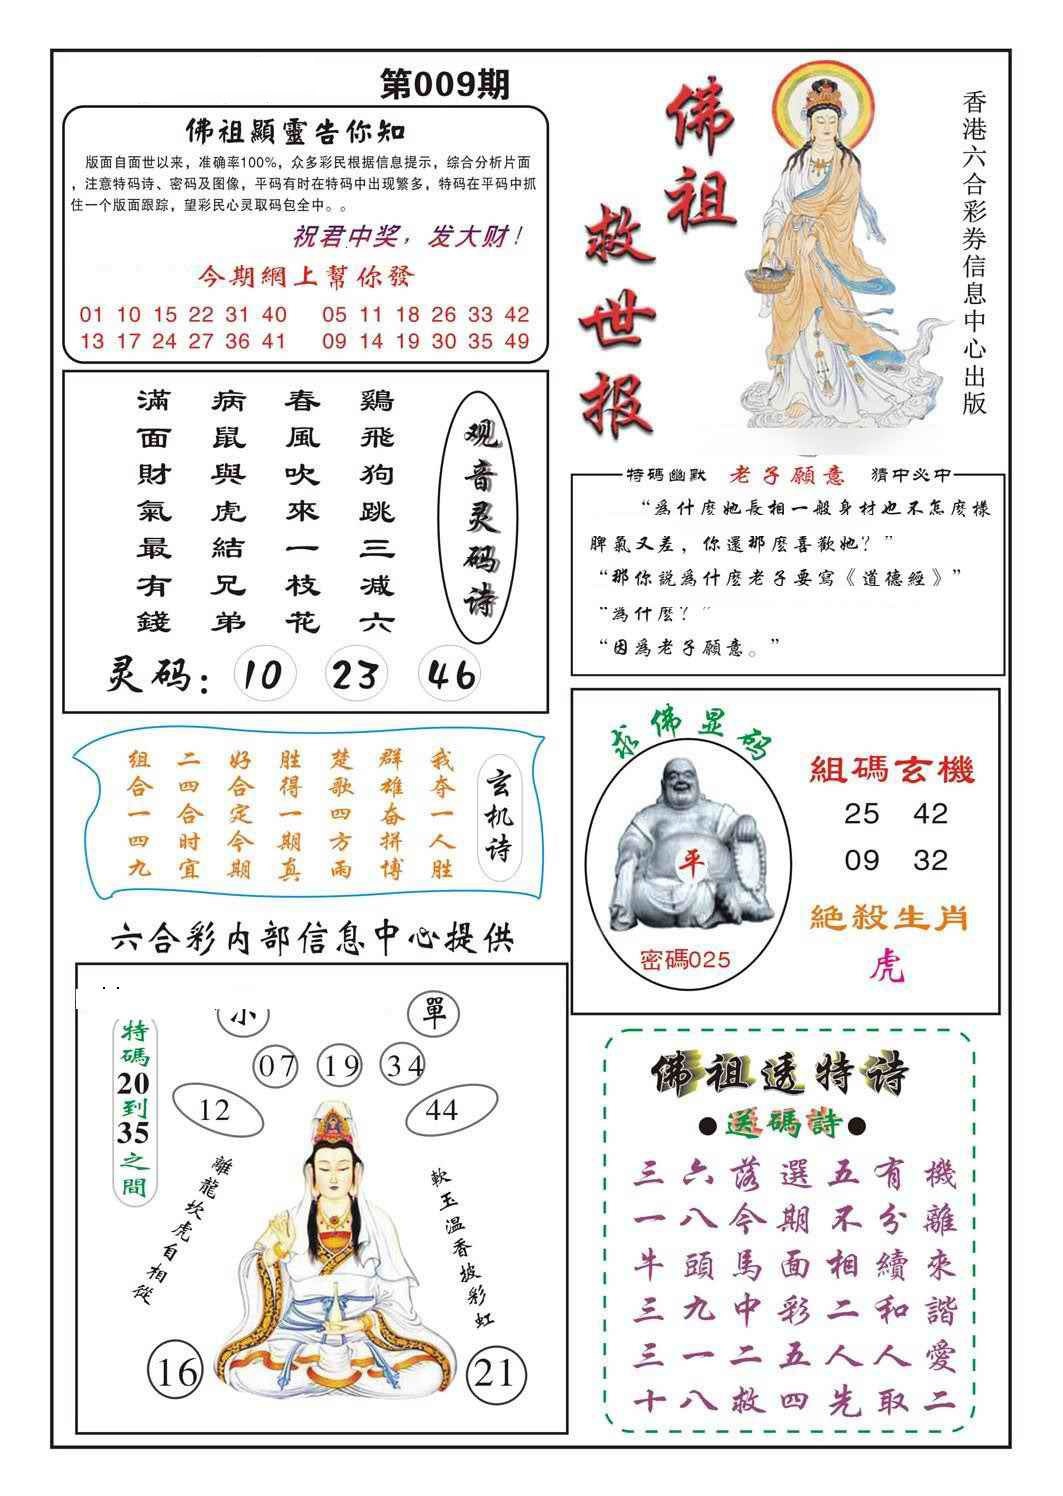 第009期
佛祖顯靈告你知
版面自面世以来，准确率100%，众多彩民根据信息提示，综合分析片面
，注意特码诗、密码及图像，平码有时在特码中出现繁多，特码在平码中抓
住一个版面跟踪，望彩民心灵取码包全中。。
祝君中奖，发大财！
今期網上幫你發
01 10 15 22 31 40 05 11 18 26 33 42
13 17 24 27 36 41 09 14 19 30 35 49
佛祖
救世报
香港六合彩券信息中心出版
观音灵码诗
鷄飛狗跳三减六
春風吹來一枝花
病鼠與虎結兄弟
滿面財氣最有錢
灵码：10 23 46
特碼幽默 老子願意 猜中必中
“為什麼她長相一般身材也不怎麼樣
脾氣又差，你還那麼喜歡她？”
“那你説為什麼老子要寫《道德經》”
“為什麼？”
“因為老子願意。”
玄机诗
我夺一人胜
群雄奋拼博
楚歌四方雨
胜得一期真
好合定今期
二四合时宜
组合一四九
求佛显码
平
密碼025
組碼玄機
25 42
09 32
絕殺生肖
虎
六合彩内部信息中心提供
單
07 19 34
12 44
特碼20到35之間
離龍坎虎自相從
軟玉温香披彩虹
16 21
佛祖透特诗
●送碼詩●
三六落選五有機
一八今期不分離
牛頭馬面相續來
三九中彩二和諧
三一二五人人愛
十八救四先取二